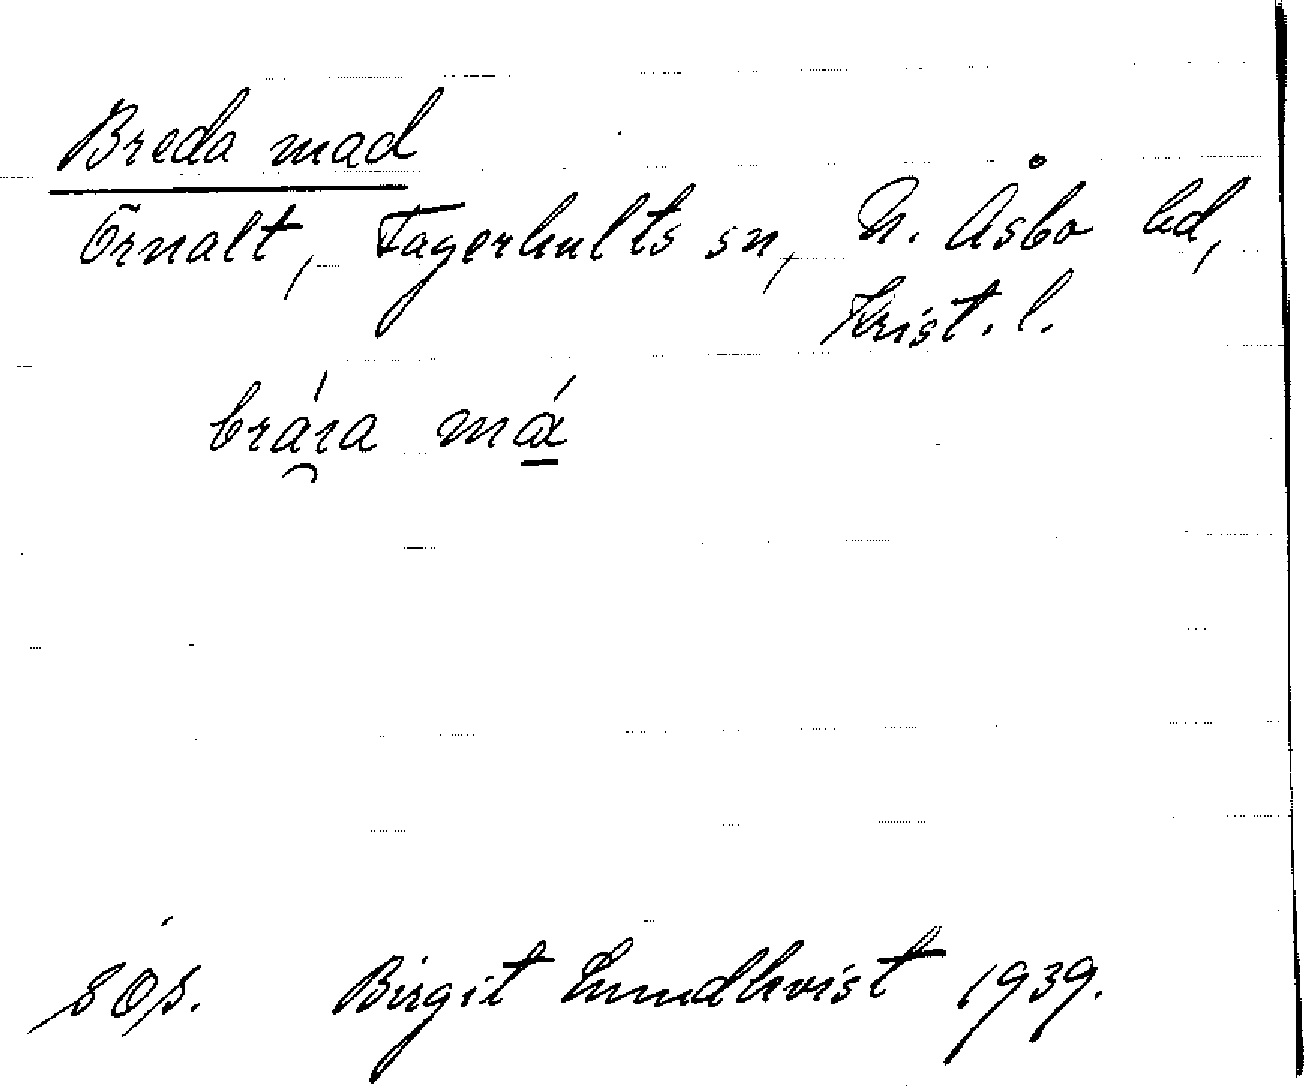 Breda mad
Örnalt, Fagerhults sn, N. Åsbo hd,
Krist. l.
bra̯ŕa má̱
Birgit Lundkvist 1939.